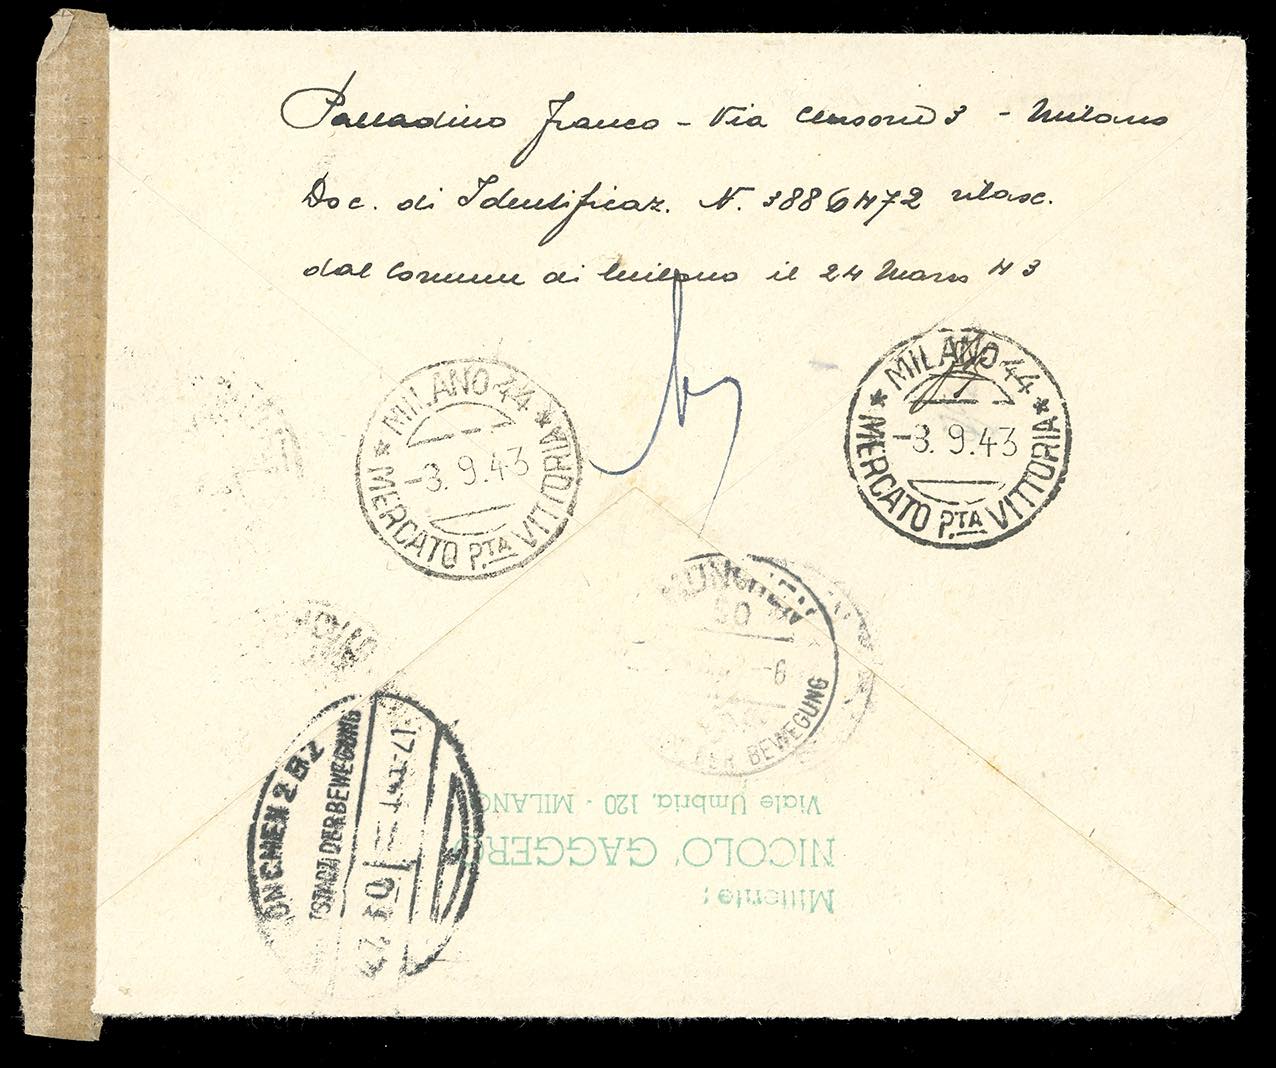 Palladino Franco - Via Censorio 3 - Milano
Doc. di Identificaz. N. 3886472 rilasc.
dal Comune di Milano il 24 Marzo 43
MILANO 44
-3.9.43
* MERCATO P.TA VITTORIA *
MILANO 44
-3.9.43
* MERCATO P.TA VITTORIA *
MÜNCHEN
DER BEWEGUNG
MÜNCHEN 2 BZ
STADT DER BEWEGUNG
Mittente:
NICOLO' GAGGERO
Viale Umbria, 120 - MILANO